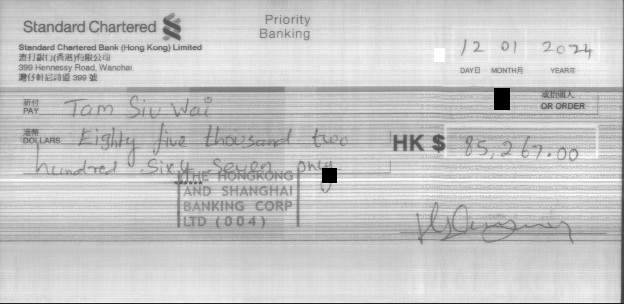 Standard Chartered
Priority
Banking
Standard Chartered Bank (Hong Kong) Limited
渣打銀行(香港)有限公司
399 Hennessy Road, Wanchai
灣仔軒尼詩道 399 號
12 01 2024
DAY日 MONTH月 YEAR年
祈付
PAY Tam Siu Wai
或持票人
OR ORDER
港幣
DOLLARS Eighty five thousand two
hundred Sixy Seven only
HK $ 85,267.00
THE HONGKONG
AND SHANGHAI
BANKING CORP
LTD (004)